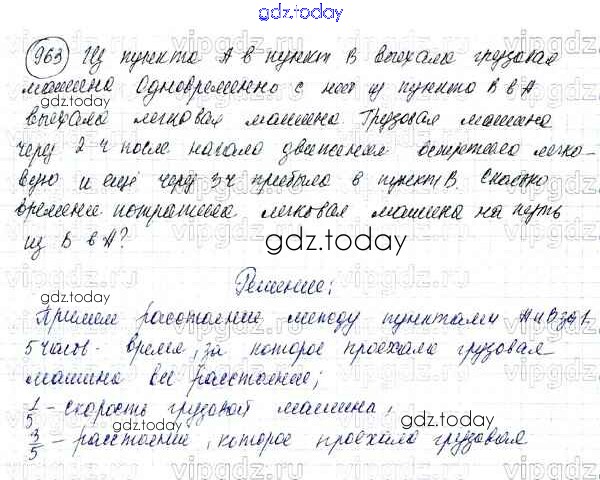 gdz.today
963 Из пункта А в пункт В выехала грузовая
машина Одновременно с ней из пункта В в А
gdz.today
выехала легковая машина. Грузовая машина
через 2 ч после начала движения встретила легко-
вую и ещё через 3 ч прибыла в пункт В. Сколько
времени потратила легковая машина на путь
из В в А?
gdz.today
Решение:
gdz.today
Примем расстояние между пунктами А и В за 1.
5 часов - время, за которое проехала грузовая
машина всё расстояние;
1/5 - скорость грузовой машины,
gdz.today
3/5 - расстояние, которое проехала грузовая
gdz.today
vipgdz.ru